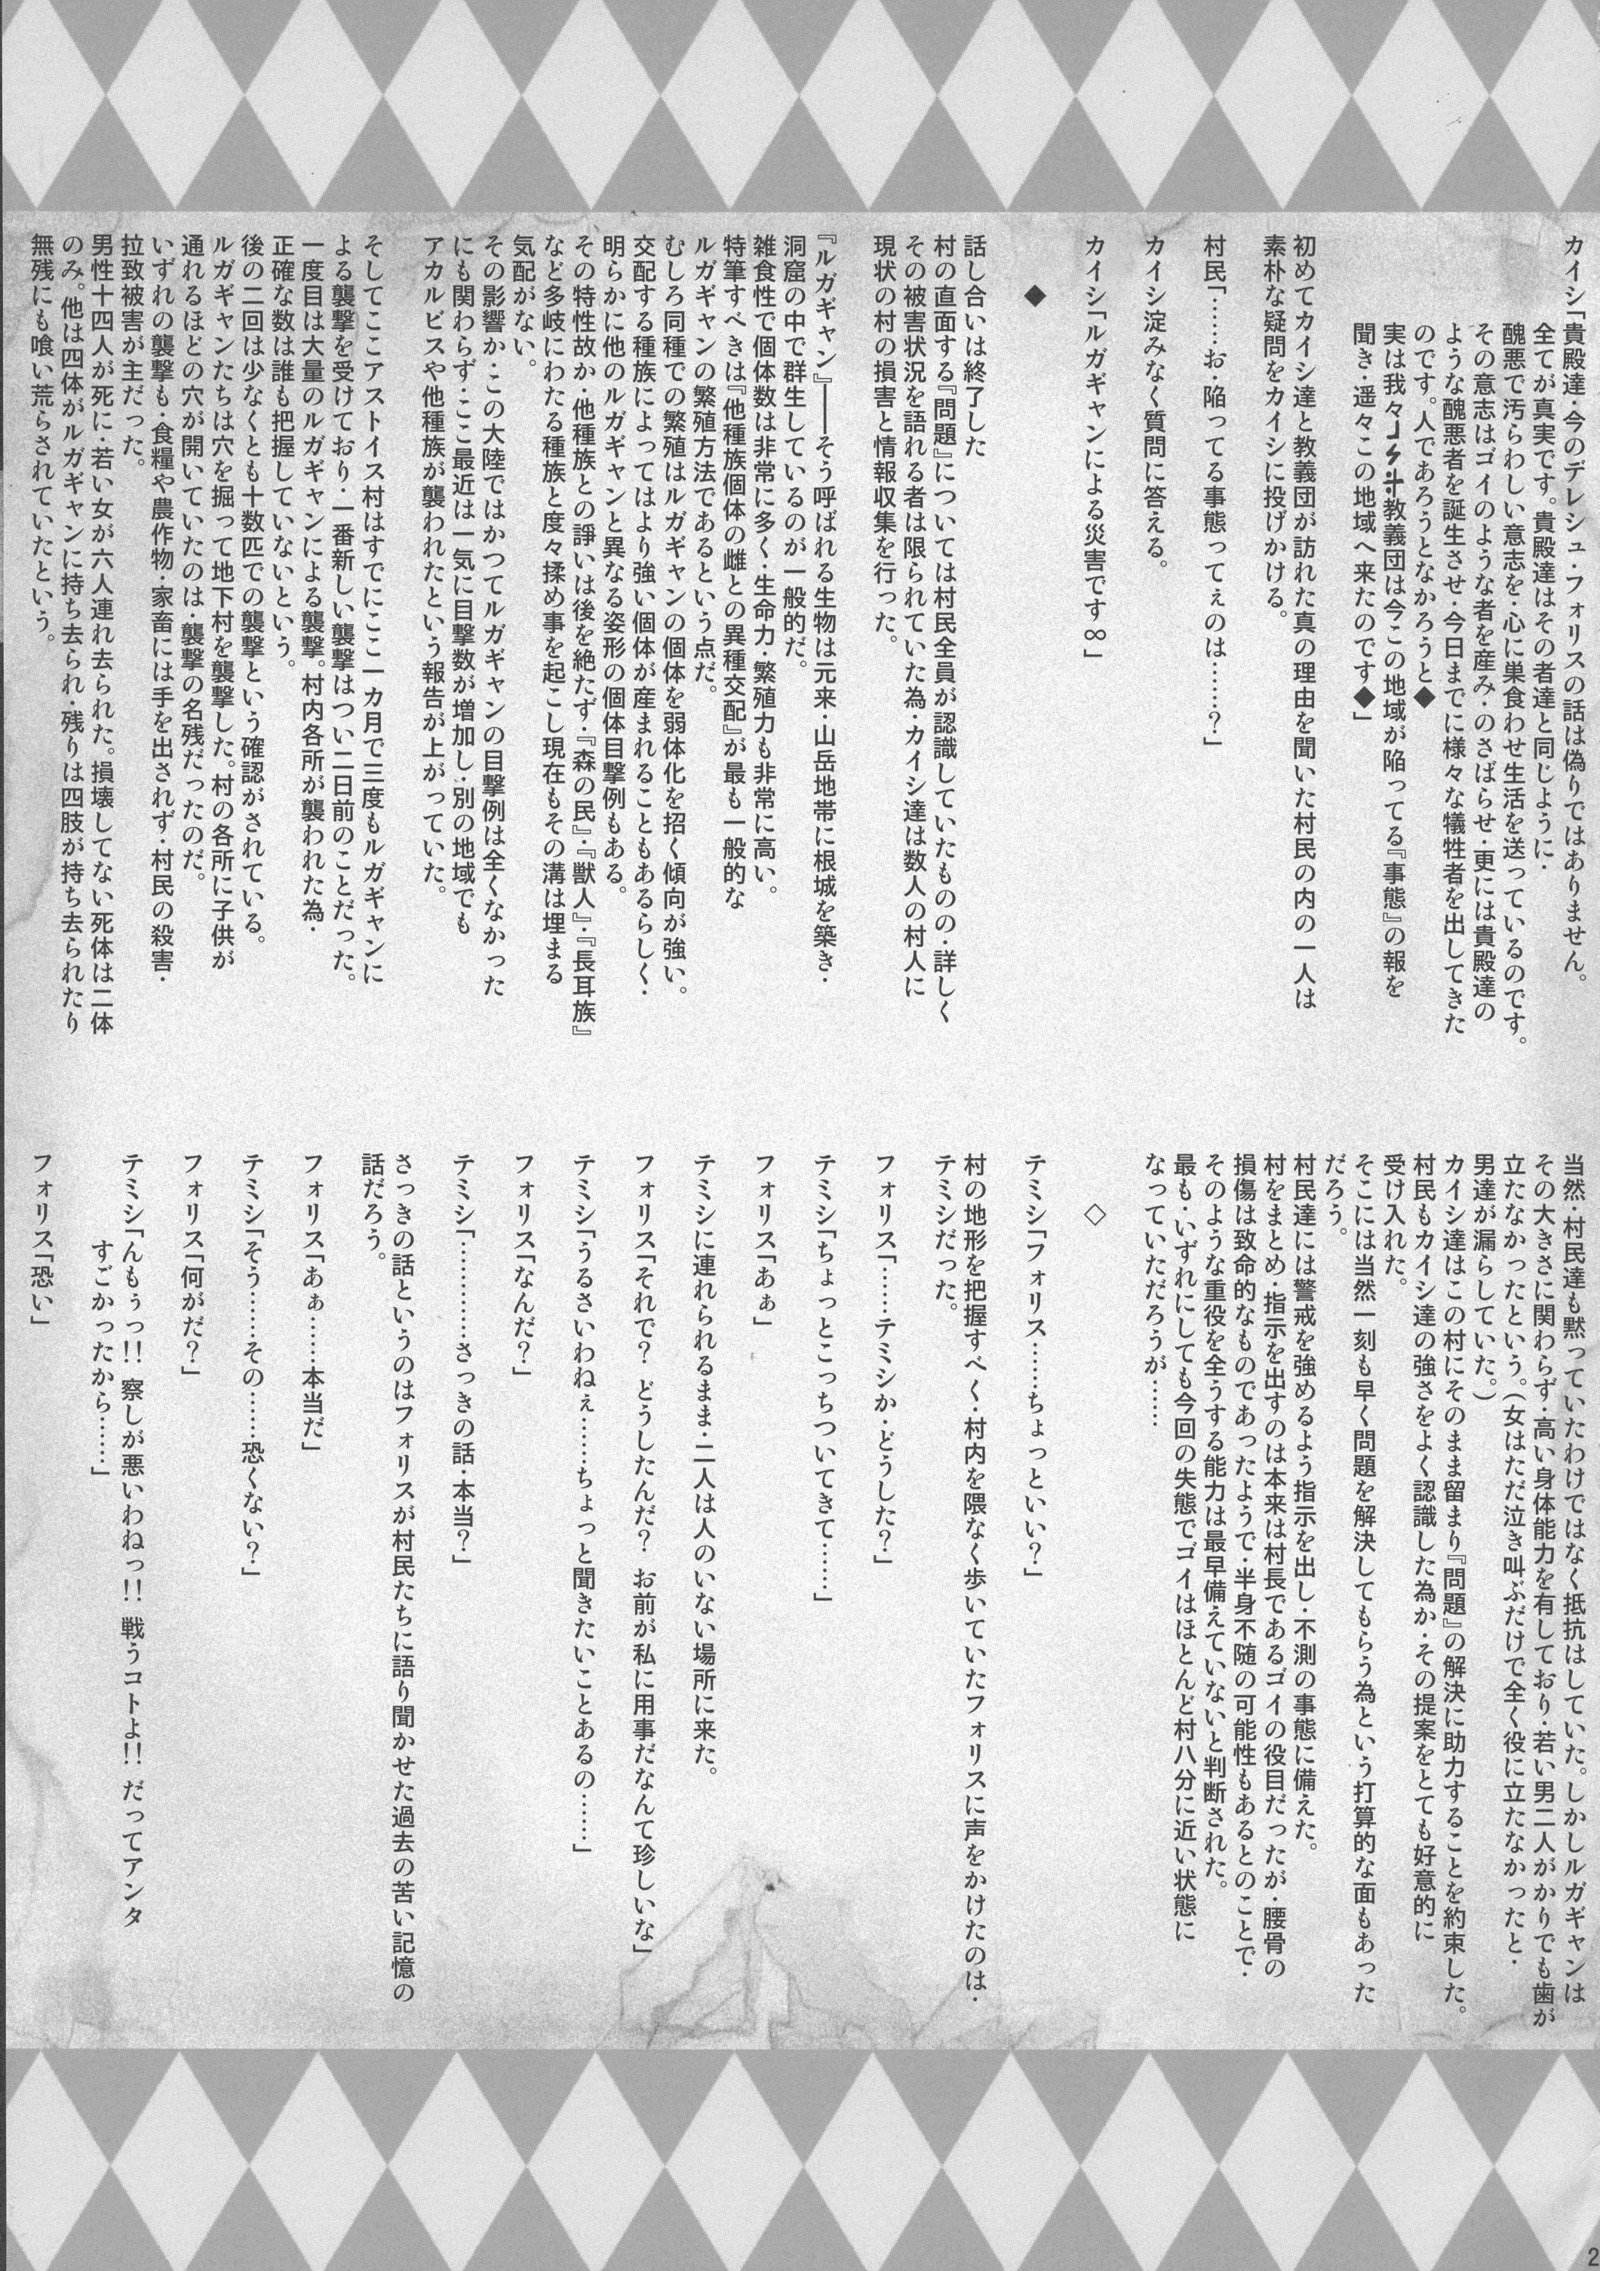 カイシ「貴殿達・今のデレシュ・フォリスの話は偽りではありません。
全てが真実です。貴殿達はその者達と同じように・
醜悪で汚らわしい意志を・心に巣食わせ生活を送っているのです。
その意志はゴイのような者を産み・のさばらせ・更には貴殿達の
ような醜悪者を誕生させ・今日までに様々な犠牲者を出してきた
のです。人であろうとなかろうと◆
実は我々教義団は今この地域が陥ってる『事態』の報を
聞き・遥々この地域へ来たのです◆」
初めてカイシ達と教義団が訪れた真の理由を聞いた村民の内の一人は
素朴な疑問をカイシに投げかける。
村民「……お・陥ってる事態ってぇのは……？」
カイシ淀みなく質問に答える。
カイシ「ルガギャンによる災害です∞」
◆
話し合いは終了した
村の直面する『問題』については村民全員が認識していたものの・詳しく
その被害状況を語れる者は限られていた為・カイシ達は数人の村人に
現状の村の損害と情報収集を行った。
『ルガギャン』――そう呼ばれる生物は元来・山岳地帯に根城を築き・
洞窟の中で群生しているのが一般的だ。
雑食性で個体数は非常に多く・生命力・繁殖力も非常に高い。
特筆すべきは『他種族個体の雌との異種交配』が最も一般的な
ルガギャンの繁殖方法であるという点だ。
むしろ同種での繁殖はルガギャンの個体を弱体化を招く傾向が強い。
交配する種族によってはより強い個体が産まれることもあるらしく・
明らかに他のルガギャンと異なる姿形の個体目撃例もある。
その特性故か・他種族との諍いは後を絶たず・『森の民』・『獣人』・『長耳族』
など多岐にわたる種族と度々揉め事を起こし現在もその溝は埋まる
気配がない。
その影響か・この大陸ではかつてルガギャンの目撃例は全くなかった
にも関わらず・ここ最近は一気に目撃数が増加し・別の地域でも
アカルビスや他種族が襲われたという報告が上がっていた。
そしてここアストイス村はすでにここ一カ月で三度もルガギャンに
よる襲撃を受けており・一番新しい襲撃はつい二日前のことだった。
一度目は大量のルガギャンによる襲撃。村内各所が襲われた為・
正確な数は誰も把握していないという。
後の二回は少なくとも十数匹での襲撃という確認がされている。
ルガギャンたちは穴を掘って地下村を襲撃した。村の各所に子供が
通れるほどの穴が開いていたのは・襲撃の名残だったのだ。
いずれの襲撃も・食糧や農作物・家畜には手を出されず・村民の殺害・
拉致被害が主だった。
男性十四人が死に・若い女が六人連れ去られた。損壊してない死体は二体
のみ。他は四体がルガギャンに持ち去られ・残りは四肢が持ち去られたり
無残にも喰い荒らされていたという。
当然・村民達も黙っていたわけではなく抵抗はしていた。しかしルガギャンは
その大きさに関わらず・高い身体能力を有しており・若い男二人がかりでも歯が
立たなかったという。（女はただ泣き叫ぶだけで全く役に立たなかったと・
男達が漏らしていた。）
カイシ達はこの村にそのまま留まり『問題』の解決に助力することを約束した。
村民もカイシ達の強さをよく認識した為か・その提案をとても好意的に
受け入れた。
そこには当然一刻も早く問題を解決してもらう為という打算的な面もあった
だろう。
村民達には警戒を強めるよう指示を出し・不測の事態に備えた。
村をまとめ・指示を出すのは本来は村長であるゴイの役目だったが・腰骨の
損傷は致命的なものであったようで・半身不随の可能性もあるとのことで・
そのような重役を全うする能力は最早備えていないと判断された。
最も・いずれにしても今回の失態でゴイはほとんど村八分に近い状態に
なっていただろうが……
◇
テミシ「フォリス……ちょっといい？」
村の地形を把握すべく・村内を隈なく歩いていたフォリスに声をかけたのは・
テミシだった。
フォリス「……テミシか・どうした？」
テミシ「ちょっとこっちついてきて……」
フォリス「あぁ」
テミシに連れられるまま・二人は人のいない場所に来た。
フォリス「それで？ どうしたんだ？ お前が私に用事だなんて珍しいな」
テミシ「うるさいわねぇ……ちょっと聞きたいことあるの……」
フォリス「なんだ？」
テミシ「…………さっきの話・本当？」
さっきの話というのはフォリスが村民たちに語り聞かせた過去の苦い記憶の
話だろう。
フォリス「あぁ……本当だ」
テミシ「そう……その……恐くない？」
フォリス「何がだ？」
テミシ「んもぅっ!! 察しが悪いわねっ!! 戦うコトよ!! だってアンタ
すごかったから……」
フォリス「恐い」
2